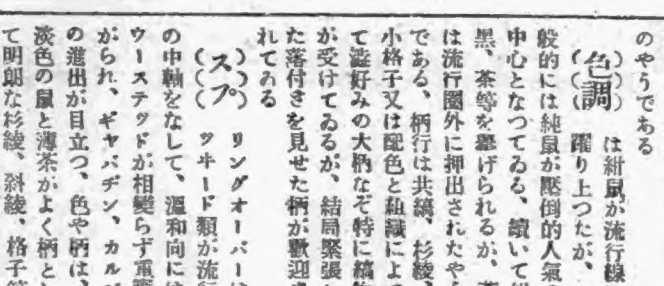 のやうである
色調 は紺鼠が流行線に
躍り上つたが、
般的には純鼠が壓倒的人氣の
中心となつてゐる、續いて
黑、茶等を擧げられるが、
は流行圈外に押出されたやう
である、柄行は共縞、杉綾、
小格子又は配色と組織によつ
て澁好みの大柄なぞ特に縞物
が受けてゐるが、結局緊張し
た落付きを見せた柄が歡迎さ
れてゐる
スプ リングオーバーは
ツヰード類が流行
の中軸をなして、溫和向には
ウーステッドが相變らず重寶
がられ、ギャバヂン、カルゼ
の進出が目立つ、色や柄は、
淡色の鼠と薄茶がよく柄とし
て明朗な杉綾、斜綾、格子等